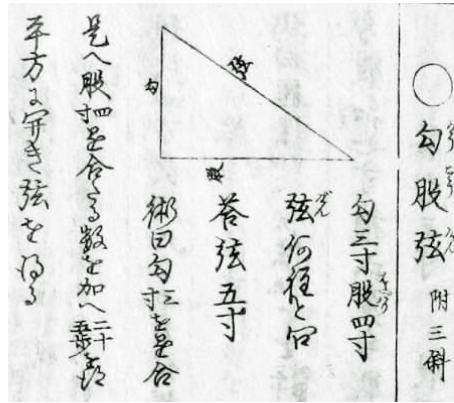 ○勾股弦 附三斜
勾三寸股四寸
弦何程と問
答弦五寸
術曰勾三寸を合
是へ股四寸合たる数を加へ二十五歩
平方に開き弦を得る
弦
勾
股